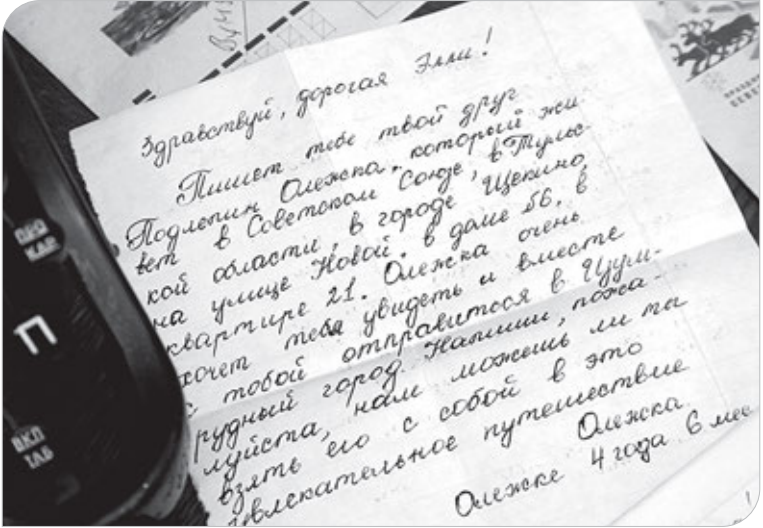 Здравствуй, дорогая Элли!
Пишет тебе твой друг
Подлепин Олежка, который жи-
вет в Советском Союзе, в Тульс-
кой области, в городе Щекино,
на улице Новой, в доме 56, в
квартире 21. Олежка очень
хочет тебя увидеть и вместе
с тобой отправиться в Изум-
рудный город. Напиши, пожа-
луйста, нам можешь ли ты
взять его с собой в это
увлекательное путешествие
Олежка
Олежке 4 года 6 мес
П
ВКЛ